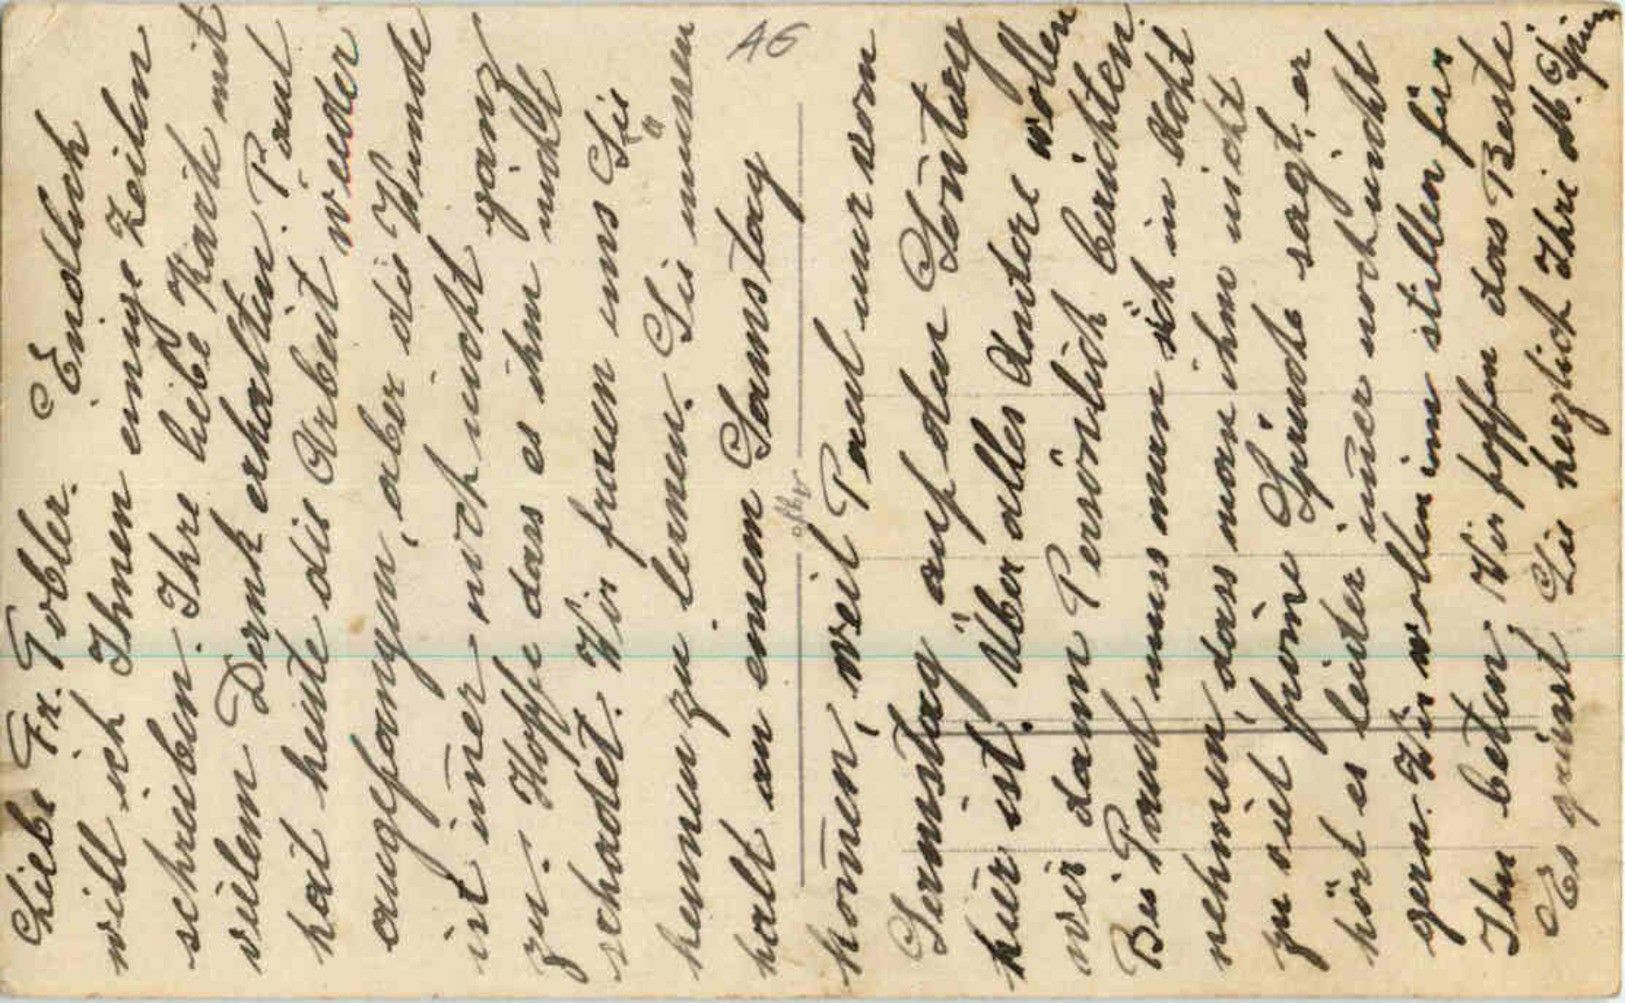 Liebe Fr. Tobler. Endlich
will ich Ihnen einige Zeilen
schreiben. Ihre liebe Karte mit
vielem Dank erhalten. Paul
hat heute die Arbeit wieder
angefangen, aber die Wunde
ist im̅er noch nicht ganz
zu. Hoffe dass es ihm nicht
schadet. Wir freuen uns Sie
kennen zu lernen. Sie müssen
halt an einem Samstag
kom̅en, weil Paul nur von
Samstag auf den Son̅tag
hier ist. Über alles Andere wollen
wir dann Persönlich berichten.
Bei Paul muss man sich in Acht
nehmen, dass man ihm nicht
zu viel from̅e Sprüche sagt, er
hört es leider im̅er noch nicht
gern. Wir wollen im stillen für
Ihn beten. Wir hoffen das Beste
Es grüsst Sie herzlich Ihre M.
öfter
AG